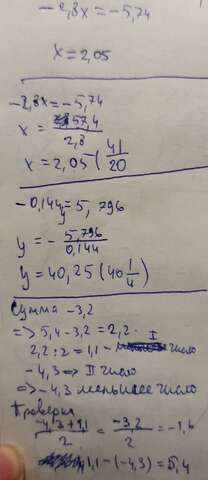 -2,8x = -5,74
x = 2,05
-2,8x = -5,74
x = 57,4 / 2,8
x = 2,05 ( 41/20
-0,144y = 5,796
y = - 5,796 / 0,144
y = 40,25 (40 1/4)
Сумма -3,2
=> 5,4 - 3,2 = 2,2
2,2 : 2 = 1,1 - I число
-4,3 => II число
=> -4,3 меньшее число
Проверка
-4,3+1,1 / 2 = -3,2 / 2 = -1,6
1,1 - (-4,3) = 5,4